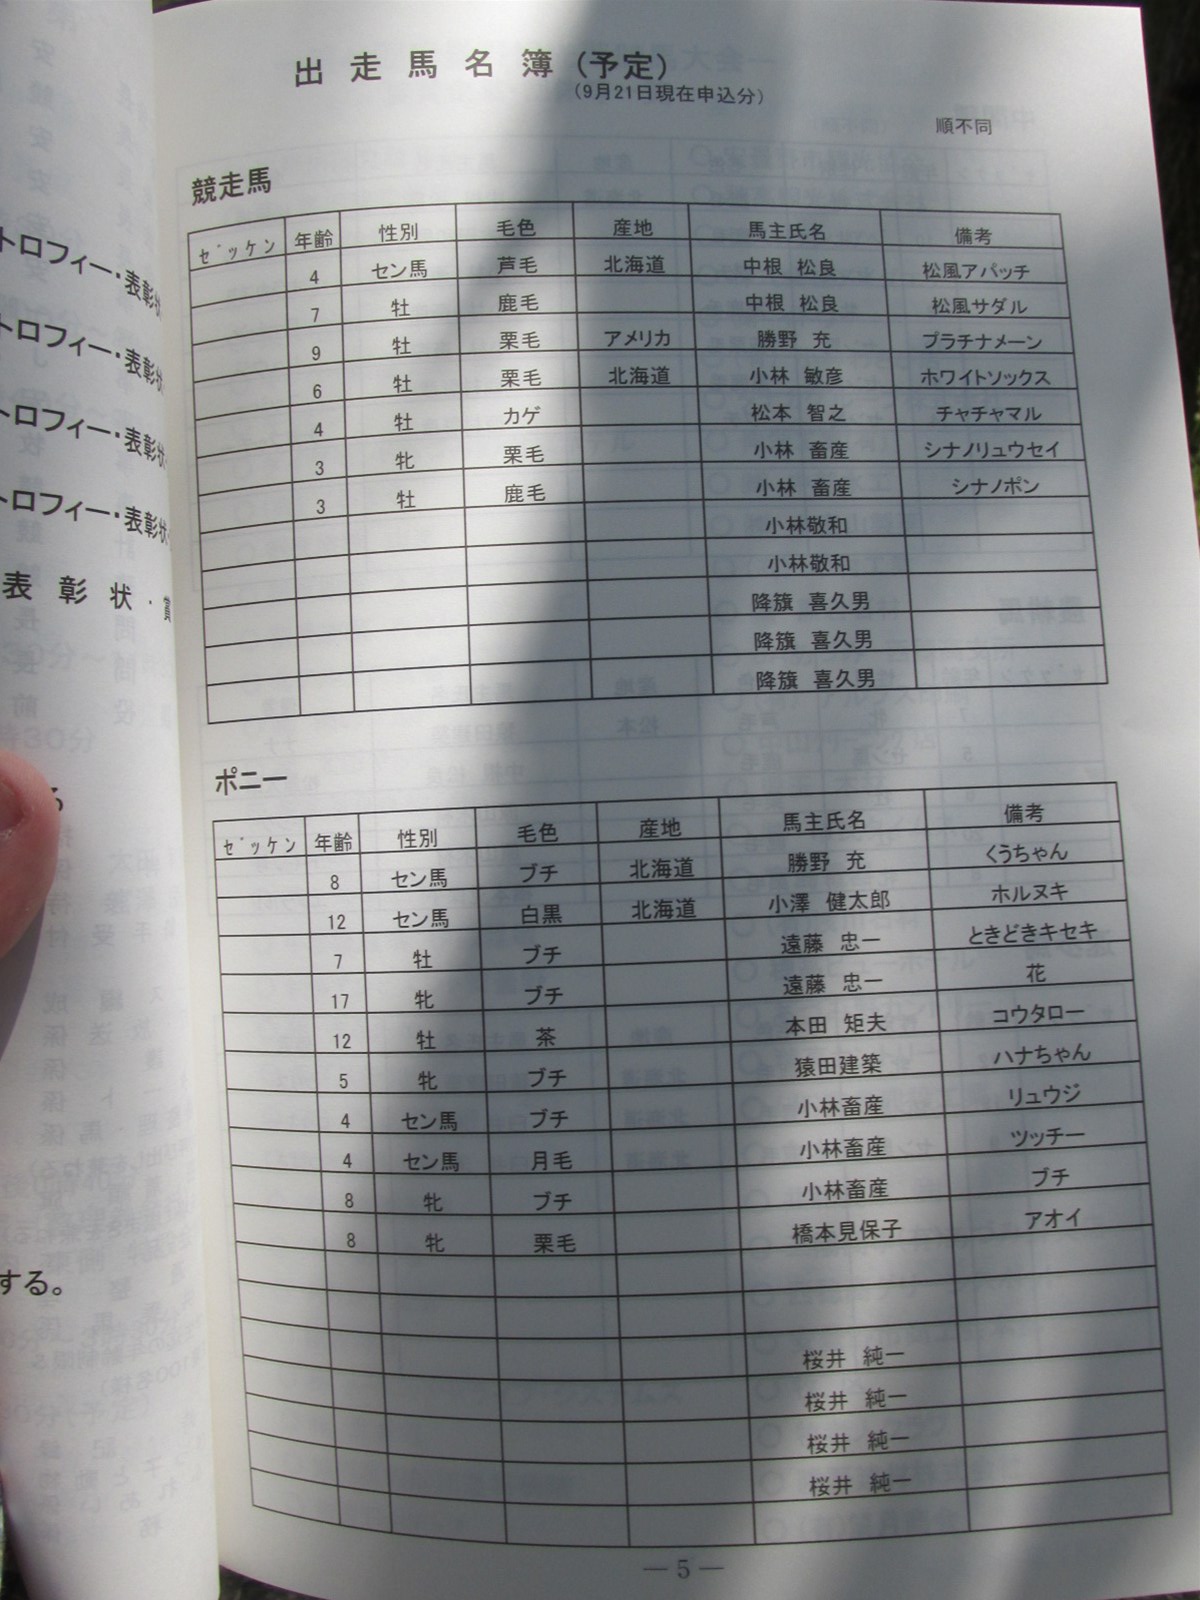 出走馬名簿(予定)
(9月21日現在申込分)
順不同
競走馬
ゼッケン 年齢 性別 毛色 産地 馬主氏名 備考
4 セン馬 芦毛 北海道 中根 松良 松風アパッチ
7 牡 鹿毛 中根 松良 松風サダル
9 牡 栗毛 アメリカ 勝野 充 プラチナメーン
6 牡 栗毛 北海道 小林 敏彦 ホワイトソックス
4 牡 カゲ 松本 智之 チャチャマル
3 牝 栗毛 小林 畜産 シナノリュウセイ
3 牡 鹿毛 小林 畜産 シナノポン
小林敬和
小林敬和
降籏 喜久男
降籏 喜久男
降籏 喜久男
ポニー
ゼッケン 年齢 性別 毛色 産地 馬主氏名 備考
8 セン馬 ブチ 北海道 勝野 充 くうちゃん
12 セン馬 白黒 北海道 小澤 健太郎 ホルヌキ
7 牡 ブチ 遠藤 忠一 ときどきキセキ
17 牝 ブチ 遠藤 忠一 花
12 牡 茶 本田 矩夫 コウタロー
5 牝 ブチ 猿田建築 ハナちゃん
4 セン馬 ブチ 小林畜産 リュウジ
4 セン馬 月毛 小林畜産 ツッチー
8 牝 ブチ 小林畜産 ブチ
8 牝 栗毛 橋本見保子 アオイ
桜井 純一
桜井 純一
桜井 純一
桜井 純一
— 5 —
トロフィー・表彰状
トロフィー・表彰状
トロフィー・表彰状
トロフィー・表彰状
表彰状・賞
る
する。